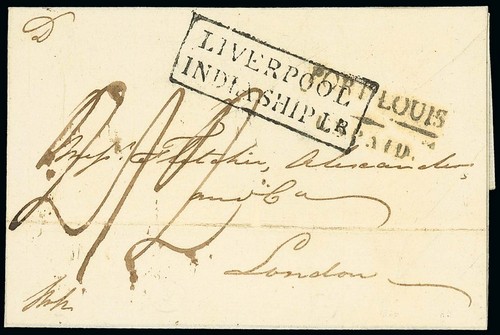 LIVERPOOL
INDIA SHIP LR
PORT LOUIS
PAID.
Mess.rs Fletcher, Alexander
and Co
London